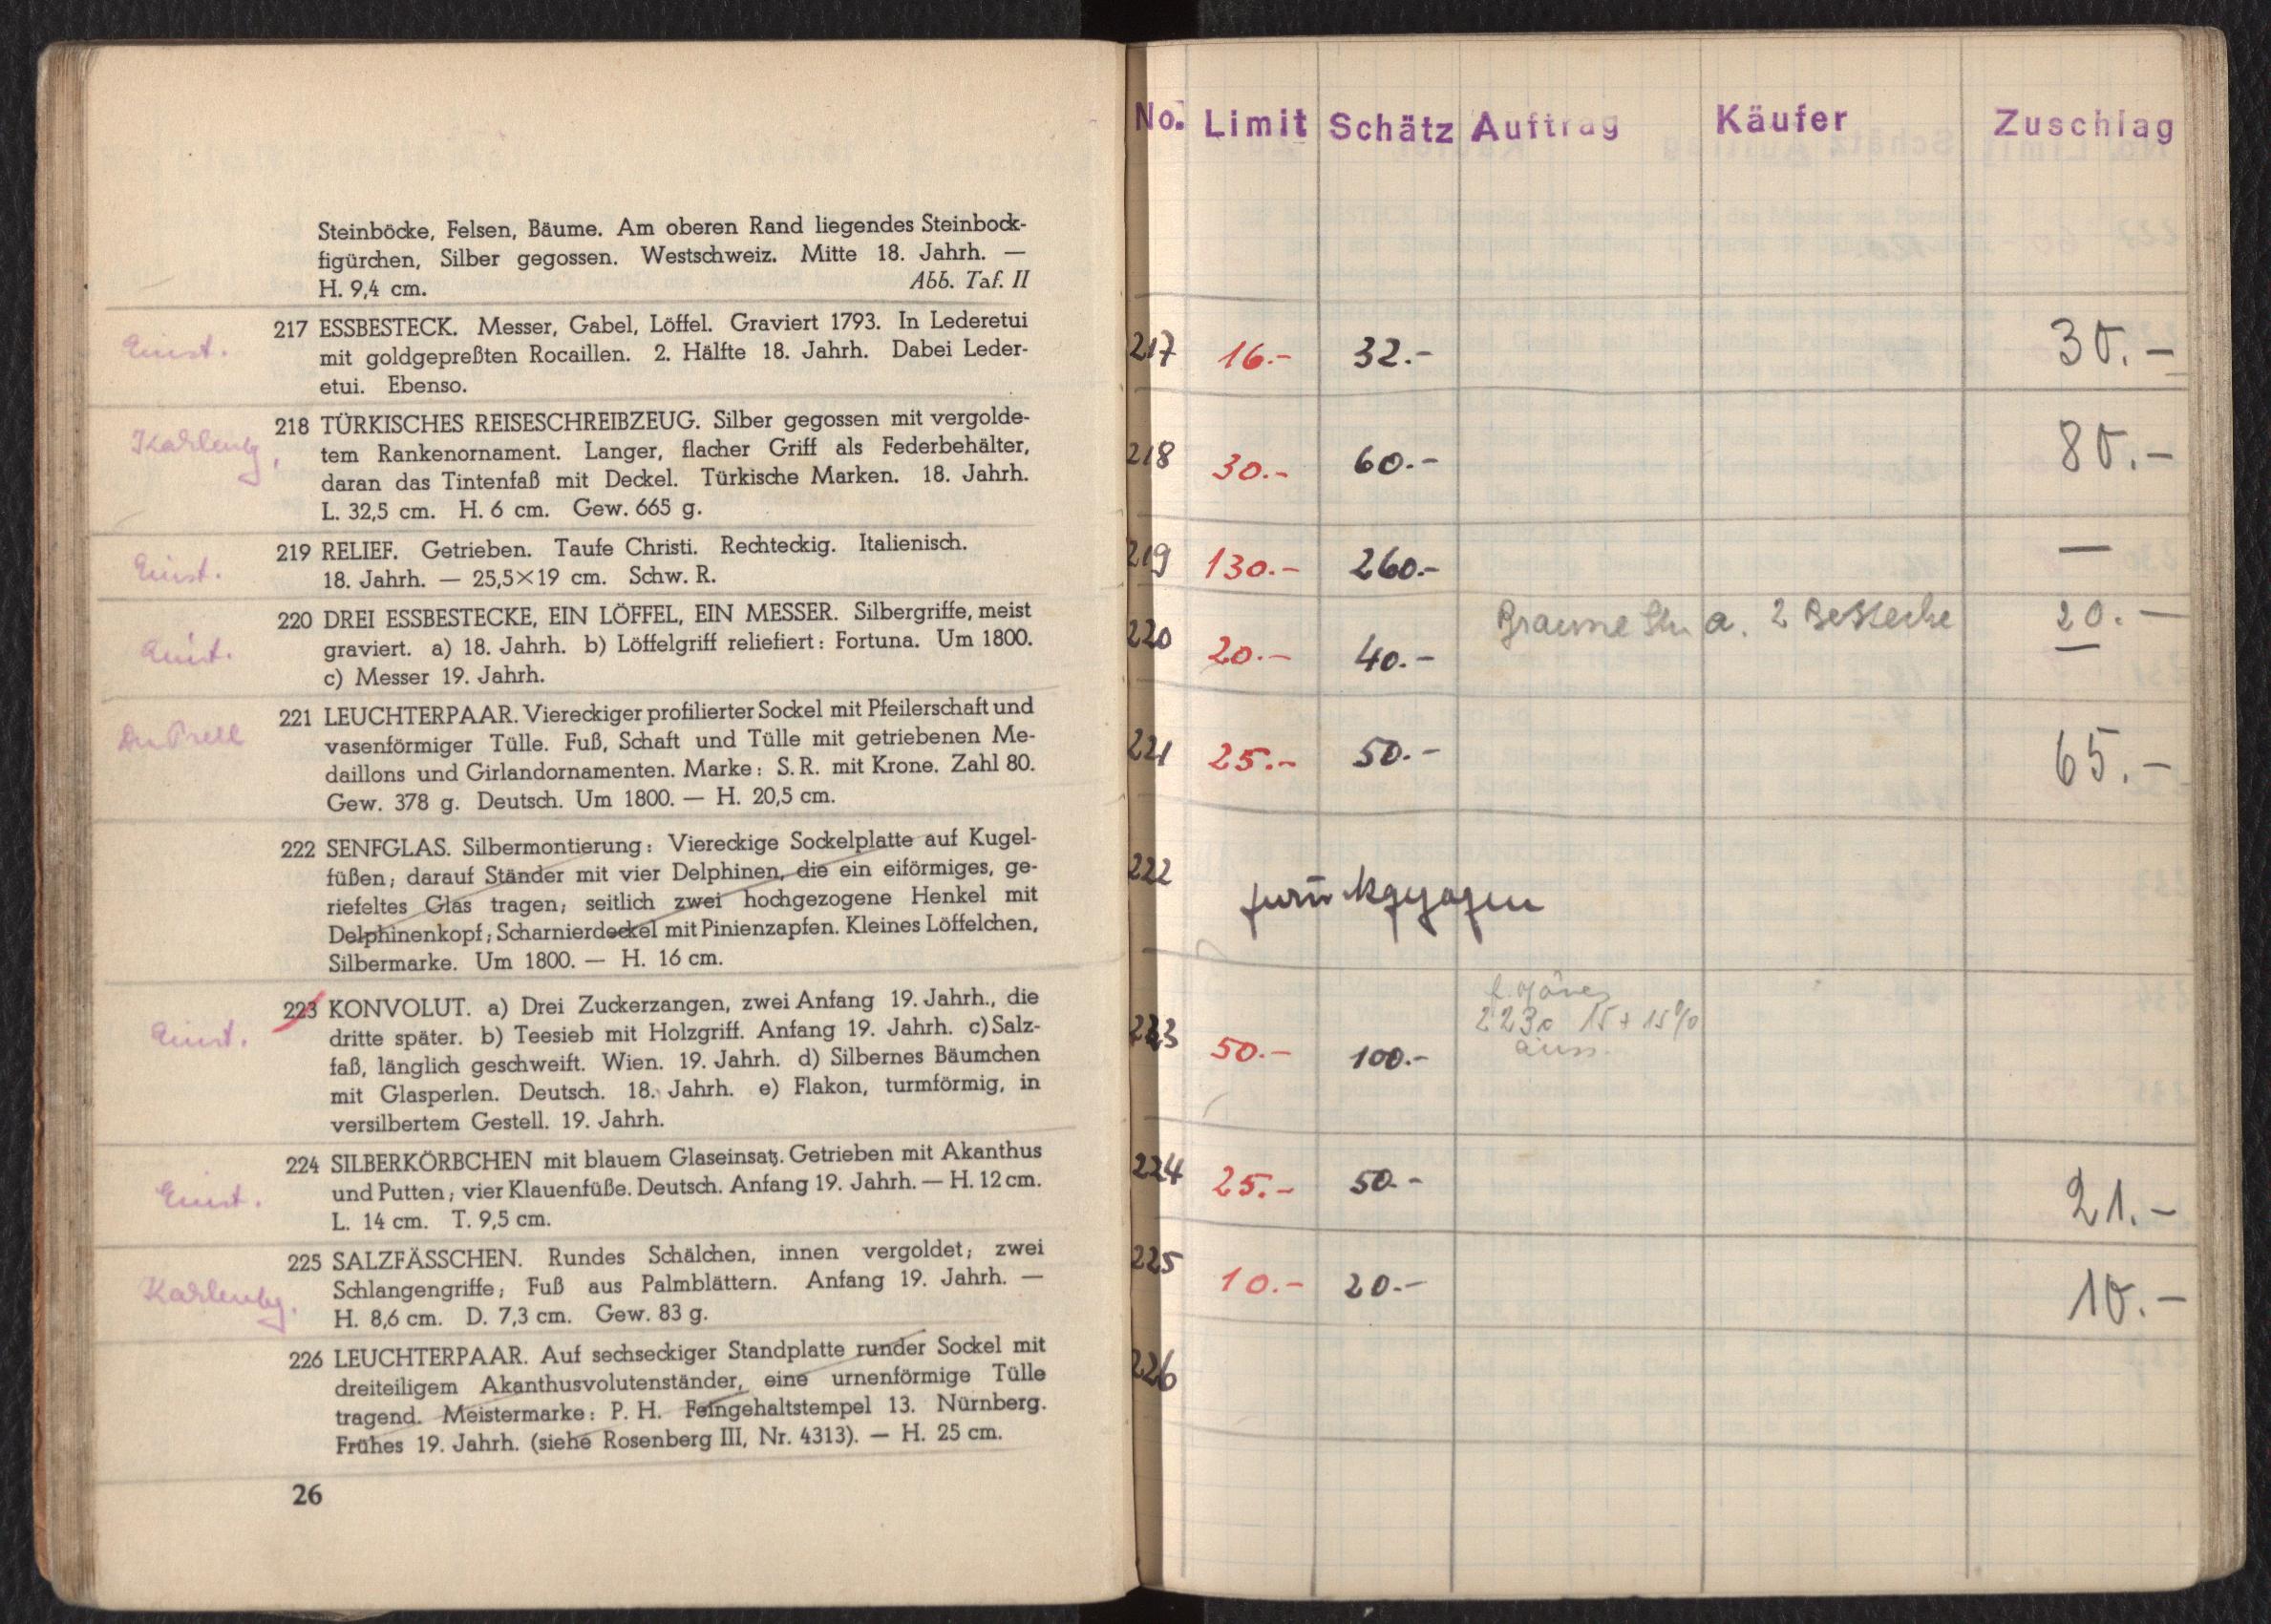 Steinböcke, Felsen, Bäume. Am oberen Rand liegendes Steinbock-
figürchen, Silber gegossen. Westschweiz. Mitte 18. Jahrh. —
H. 9,4 cm. Abb. Taf. II
217 ESSBESTECK. Messer, Gabel, Löffel. Graviert 1793. In Lederetui
mit goldgepreßten Rocaillen. 2. Hälfte 18. Jahrh. Dabei Leder-
etui. Ebenso.
218 TÜRKISCHES REISESCHREIBZEUG. Silber gegossen mit vergolde-
tem Rankenornament. Langer, flacher Griff als Federbehälter,
daran das Tintenfaß mit Deckel. Türkische Marken. 18. Jahrh.
L. 32,5 cm. H. 6 cm. Gew. 665 g.
219 RELIEF. Getrieben. Taufe Christi. Rechteckig. Italienisch.
18. Jahrh. — 25,5×19 cm. Schw. R.
220 DREI ESSBESTECKE, EIN LÖFFEL, EIN MESSER. Silbergriffe, meist
graviert. a) 18. Jahrh. b) Löffelgriff reliefiert: Fortuna. Um 1800.
c) Messer 19. Jahrh.
221 LEUCHTERPAAR. Viereckiger profilierter Sockel mit Pfeilerschaft und
vasenförmiger Tülle. Fuß, Schaft und Tülle mit getriebenen Me-
daillons und Girlandornamenten. Marke: S. R. mit Krone. Zahl 80.
Gew. 378 g. Deutsch. Um 1800. — H. 20,5 cm.
222 SENFGLAS. Silbermontierung: Viereckige Sockelplatte auf Kugel-
füßen; darauf Ständer mit vier Delphinen, die ein eiförmiges, ge-
riefeltes Glas tragen; seitlich zwei hochgezogene Henkel mit
Delphinenkopf; Scharnierdeckel mit Pinienzapfen. Kleines Löffelchen,
Silbermarke. Um 1800. — H. 16 cm.
223 KONVOLUT. a) Drei Zuckerzangen, zwei Anfang 19. Jahrh., die
dritte später. b) Teesieb mit Holzgriff. Anfang 19. Jahrh. c) Salz-
faß, länglich geschweift. Wien. 19. Jahrh. d) Silbernes Bäumchen
mit Glasperlen. Deutsch. 18. Jahrh. e) Flakon, turmförmig, in
versilbertem Gestell. 19. Jahrh.
224 SILBERKÖRBCHEN mit blauem Glaseinsatz. Getrieben mit Akanthus
und Putten; vier Klauenfüße. Deutsch. Anfang 19. Jahrh. — H. 12 cm.
L. 14 cm. T. 9,5 cm.
225 SALZFÄSSCHEN. Rundes Schälchen, innen vergoldet; zwei
Schlangengriffe; Fuß aus Palmblättern. Anfang 19. Jahrh. —
H. 8,6 cm. D. 7,3 cm. Gew. 83 g.
226 LEUCHTERPAAR. Auf sechseckiger Standplatte runder Sockel mit
dreiteiligem Akanthusvolutenständer, eine urnenförmige Tülle
tragend. Meistermarke: P. H. Feingehaltstempel 13. Nürnberg.
Frühes 19. Jahrh. (siehe Rosenberg III, Nr. 4313). — H. 25 cm.
26
No. Limit Schätz Auftrag Käufer Zuschlag
217 16.- 32.- 30.-
218 30.- 60.- 80.-
219 130.- 260.- —
220 20.- 40.- a. 2 Bestecke 20.-
221 25.- 50.- 65.-
222 zurückgezogen
223 50.- 100.- 15 + 15%
224 25.- 50.- 21.-
225 10.- 20.- 10.-
226